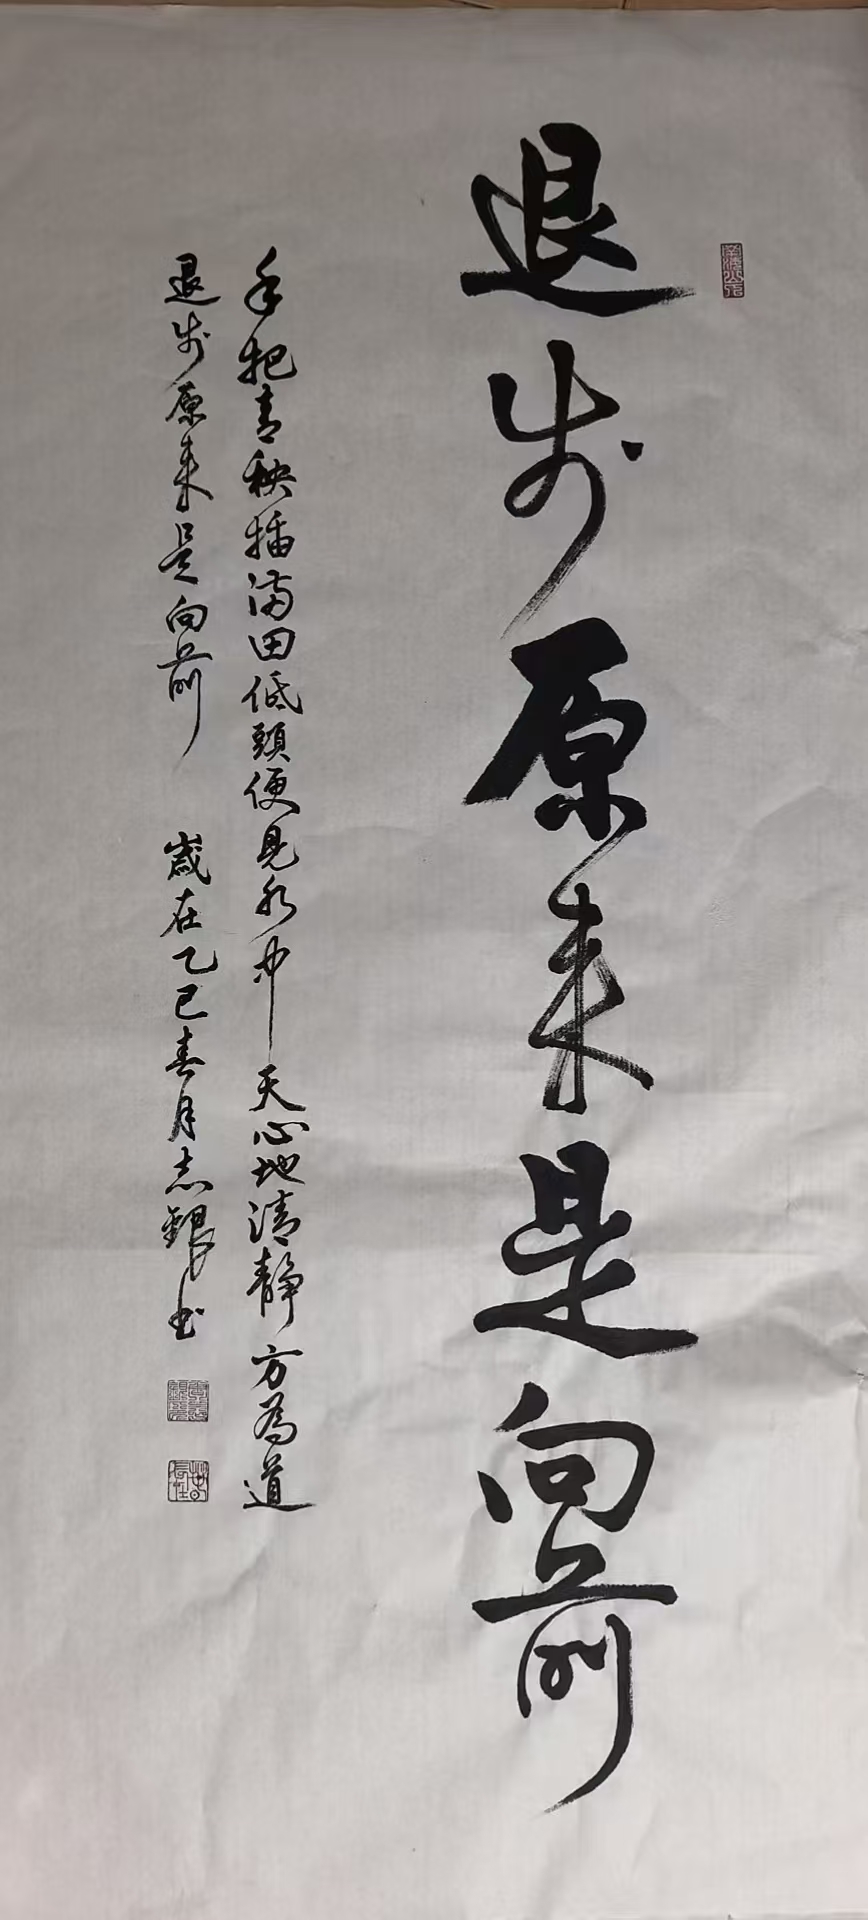 退步原来是向前
手把青秧插满田低頭便見水中天心地清静方為道
退步原来是向前 歲在乙巳春月志銀书